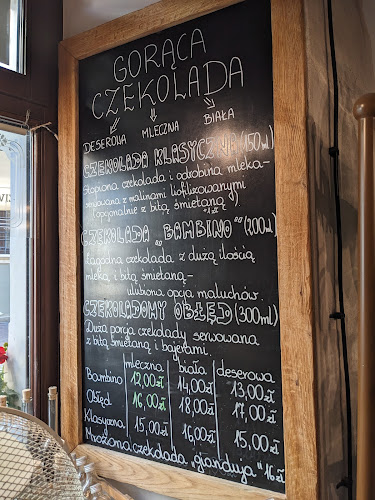 GORĄCA
CZEKOLADA
DESEROWA MLECZNA BIAŁA
CZEKOLADA KLASYCZNA (150ml)
Stopiona czekolada i odrobina mleka-
serwowana z malinami liofilizowanymi
(opcjonalnie z bitą śmietaną)
CZEKOLADA „BAMBINO" (200ml)
Łagodna czekolada z dużą ilością
mleka i bitą śmietaną-
ulubiona opcja maluchów.
CZEKOLADOWY OBŁĘD (300ml)
Duża porcja czekolady serwowana
z bitą śmietaną i bajerami.
mleczna biała deserowa
Bambino 12,00zł 14,00zł 13,00zł
Obłęd 16,00zł 18,00zł 17,00zł
Klasyczna 15,00zł 16,00zł 15,00zł
Mrożona czekolada „gianduja" 16zł